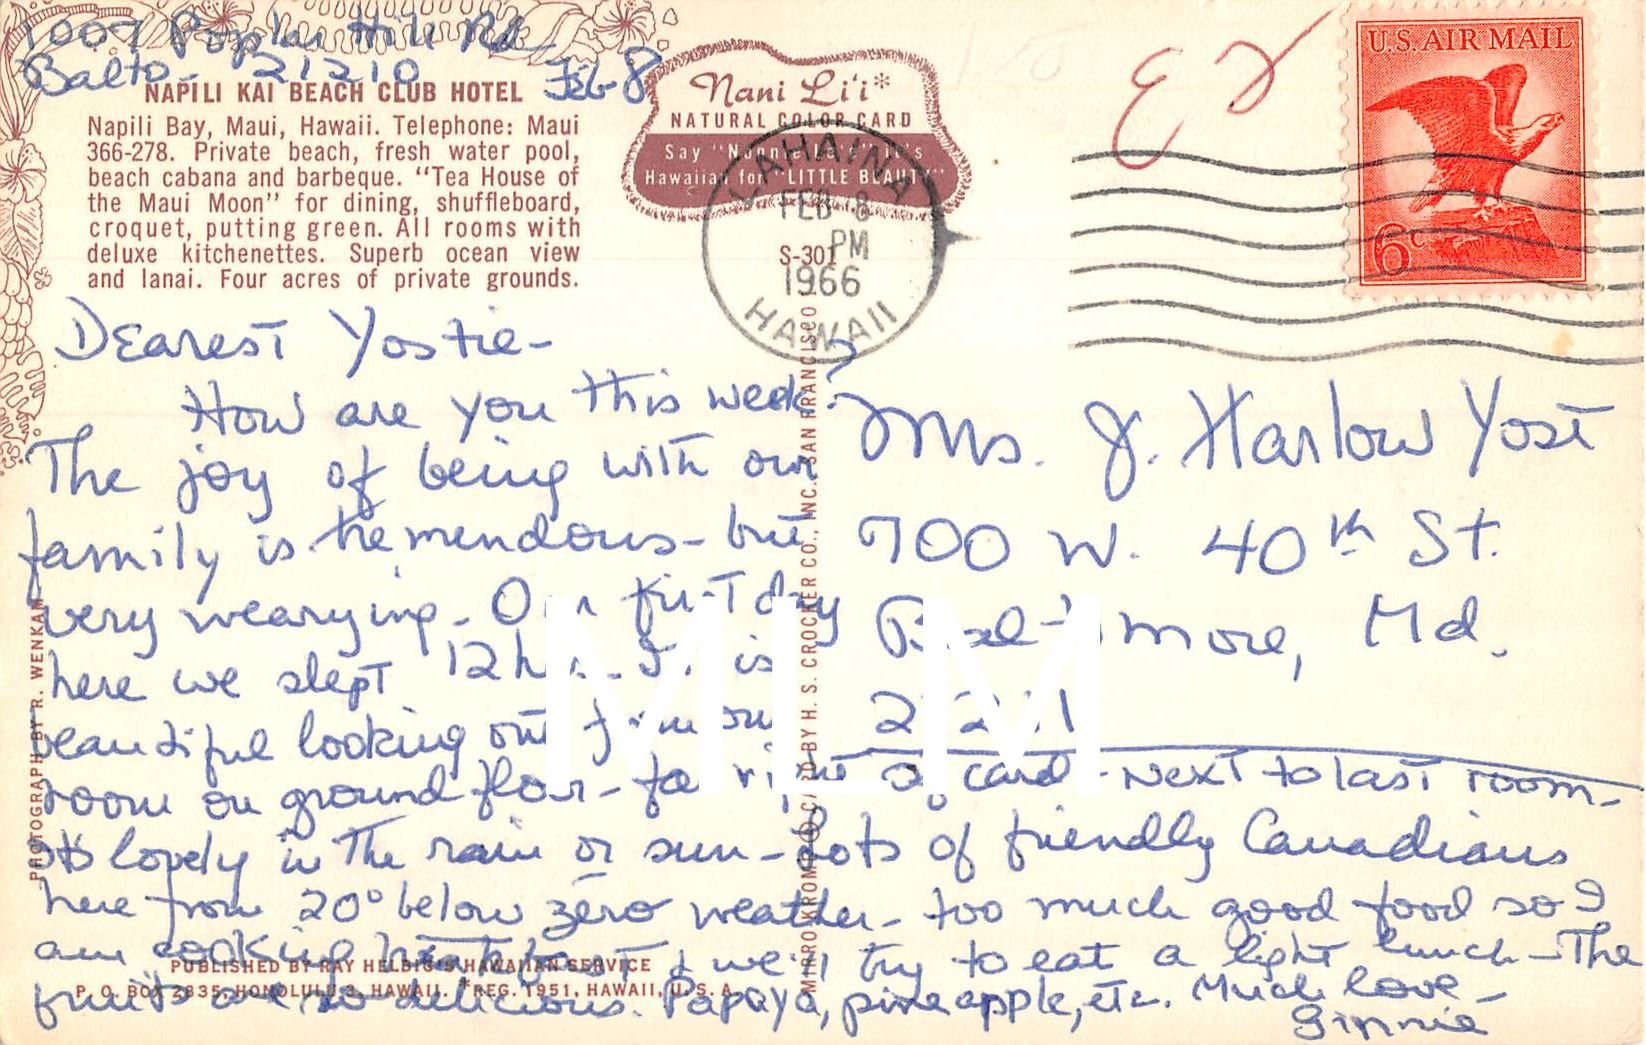 1007 Poplar Hill Rd
Balto - 21210
Feb 8
NAPILI KAI BEACH CLUB HOTEL
Napili Bay, Maui, Hawaii. Telephone: Maui
366-278. Private beach, fresh water pool,
beach cabana and barbeque. "Tea House of
the Maui Moon" for dining, shuffleboard,
croquet, putting green. All rooms with
deluxe kitchenettes. Superb ocean view
and lanai. Four acres of private grounds.
Nani Li'i*
NATURAL COLOR CARD
Say "Nannie
Hawaiian for "LITTLE BEAUTY"
S-301
LAHAINA
FEB 8
PM
1966
HAWAII
U.S. AIR MAIL
6c
Dearest Yostie -
How are you this week?
The joy of being with our
family is tremendous - but
very wearying. Our first day
here we slept 12 hrs. It is
beautiful looking out from our
room on ground floor - far right of card - Next to last room -
It's lovely in the rain or sun - Lots of friendly Canadians
here from 20° below zero weather - too much good food so I
am cooking breakfast & we'll try to eat a light lunch - The
fruits are so delicious. Papaya, pineapple, etc. Much love -
Ginnie
Mrs. J. Harlow Yost
700 W. 40th St.
Baltimore, Md.
PHOTOGRAPH BY R. WENKAM
MIRRO-KROME ® CARD BY H. S. CROCKER CO., INC. SAN FRANCISCO
PUBLISHED BY RAY HELBIG'S HAWAIIAN SERVICE
P. O. BOX 2835, HONOLULU 3, HAWAII. *REG. 1951, HAWAII, U. S. A.
MLM